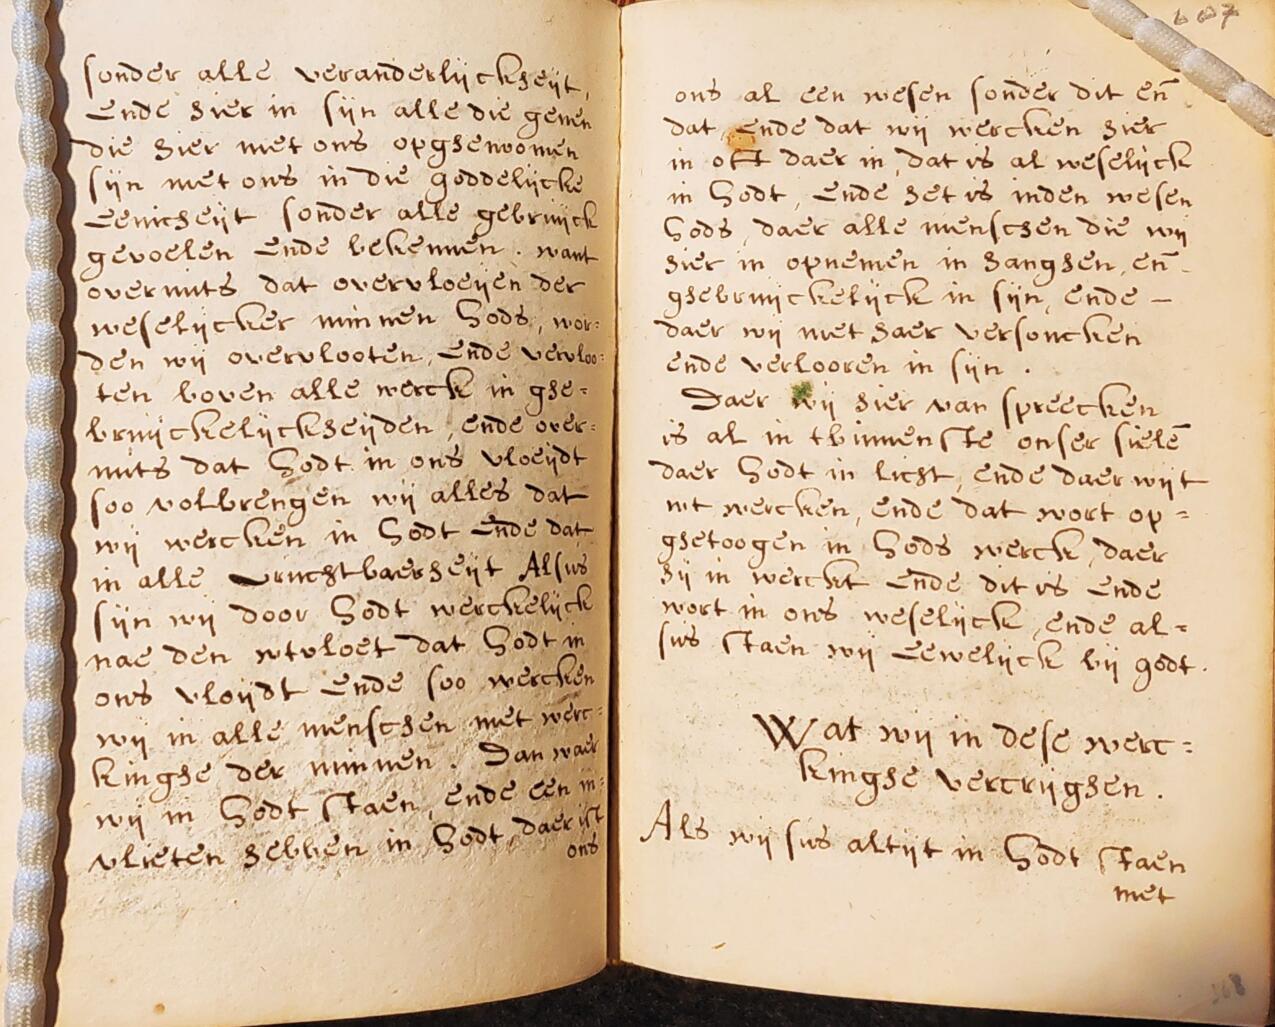 sonder alle veranderlijckheijt,
Ende hier in sijn alle die genen
die hier met ons opghenomen
sijn met ons in die goddelijcke
Eenicheijt sonder alle gebruijck
gevoelen Ende bekennen. want
overmits dat overvloeijen der
weselijcker minnen Godts, wor=
den wij overvlooten, Ende vervloo=
ten boven alle werck in ghe=
bruijckelijckheijden, ende over=
mits dat Godt in ons vloeijdt
soo volbrengen wij alles dat
wij wercken in Godt Ende dat
in alle vruchtbaerheijt Alsus
sijn wij door Godt werckelijck
nae den wtvloet dat Godt in
ons vloijdt Ende soo wercken
wij in alle menschen met werc=
kinghe der minnen. Dan waer
wij in Godt staen, ende een in=
vlieten hebben in Godt, daer ist
ons
607
ons al een wesen sonder dit eñ
dat Ende dat wij wercken hier
in oft daer in, dat is al weselijck
in Godt, Ende het is inden wesen
Gods, daer alle menschen die wij
hier in opnemen in hanghen, eñ
ghebruijckelijck in sijn, ende —
daer wij met haer versoncken
ende verlooren in sijn.
Daer wij hier van spreecken
is al in tbinnenste onser sielē
daer Godt in licht, ende daer wijt
wt wercken, ende dat wort op=
ghetoogen in Gods werck, daer
hij in werckt Ende dit is Ende
wort in ons weselijck, ende al=
sus staen wij Eewelijck bij godt.
Wat wij in dese werc=
kinghe vercrijghen.
Als wij sus altijt in Godt staen
met
368